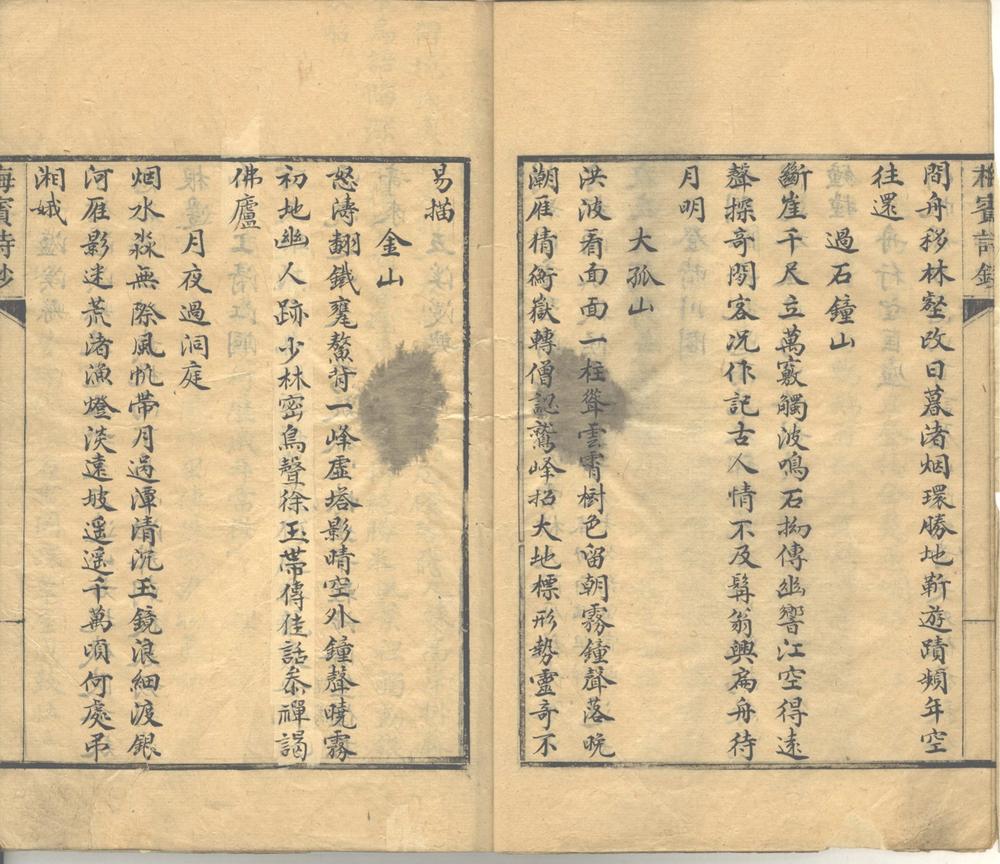 梅賓詩鈔
問舟移林壑改日暮渚烟環勝地靳遊蹟頻年空
往還
過石鐘山
斷崖千尺立萬竅觸波鳴石拗傳幽響江空得遠
聲探奇閱客况作記古人情不及髯翁興扁舟待
月明
大孤山
洪波看面面一柱聳雲霄樹色留朝霧鐘聲落晚
潮雁猜衡嶽轉僧認鷲峰招大地標形勢靈奇不
易描
金山
怒濤翻鐵甕鰲背一峰虛塔影晴空外鐘聲曉霧
初地幽人跡少林密鳥聲徐玉帶傳佳話叅禪謁
佛廬
月夜過洞庭
烟水淼無際風帆帶月過潭清沉玉鏡浪細渡銀
河雁影迷荒渚漁燈淡遠坡遥遥千萬頃何處弔
湘娥
梅賓詩鈔